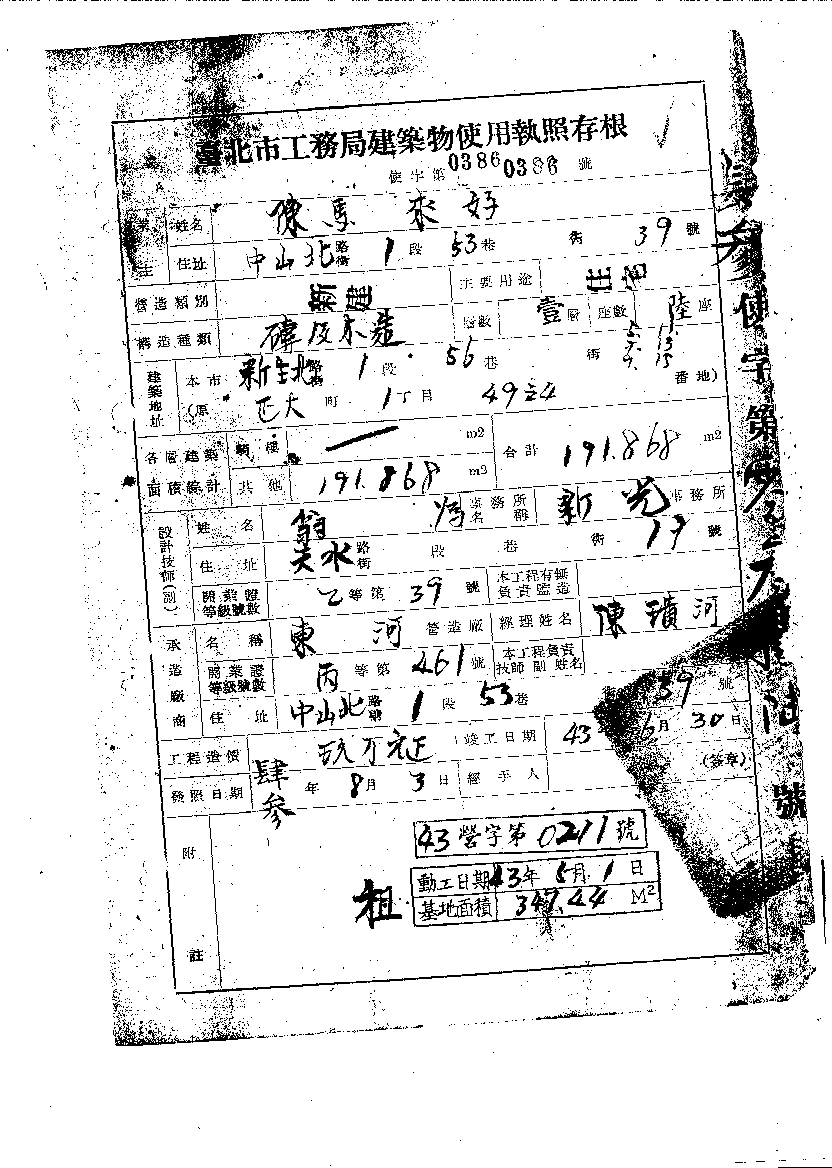 臺北市工務局建築物使用執照存根
使字第 0386 0386 號
業主 姓名 陳馬來好
住址 中山北路街 1 段 53 巷 街 39 號
營造類別 新建 主要用途 住宅
構造種類 磚及木造 層數 壹層 座數 陸座
建築地址 本市 新生北路街 1 段 56 巷 街 5. 7. 9. 11 13 15
(原 正大町 1丁目 49之4 番地)
各層建築面積總計 騎樓 m2 合計 191.868 m2
其他 191.868 m2
設計技師(副) 姓名 翁 事務所名稱 新光事務所
住址 天水路街 段 巷 街 17 號
開業證等級號數 乙等第 39 號 本工程有無負責監造
承造廠商 名稱 東河營造廠 經理姓名 陳瓆河
開業證等級號數 丙等第 461 號 本工程負責技師副姓名
住址 中山北路街 1 段 53 巷 39 號
工程造價 玖萬元正 竣工日期 43 年 6 月 30 日
發照日期 肆參年 8 月 3 日 經手人 (簽章)
附註
43營字第0211號
動工日期 43年5月1日
基地面積 347.44 M²
租
使字第 號